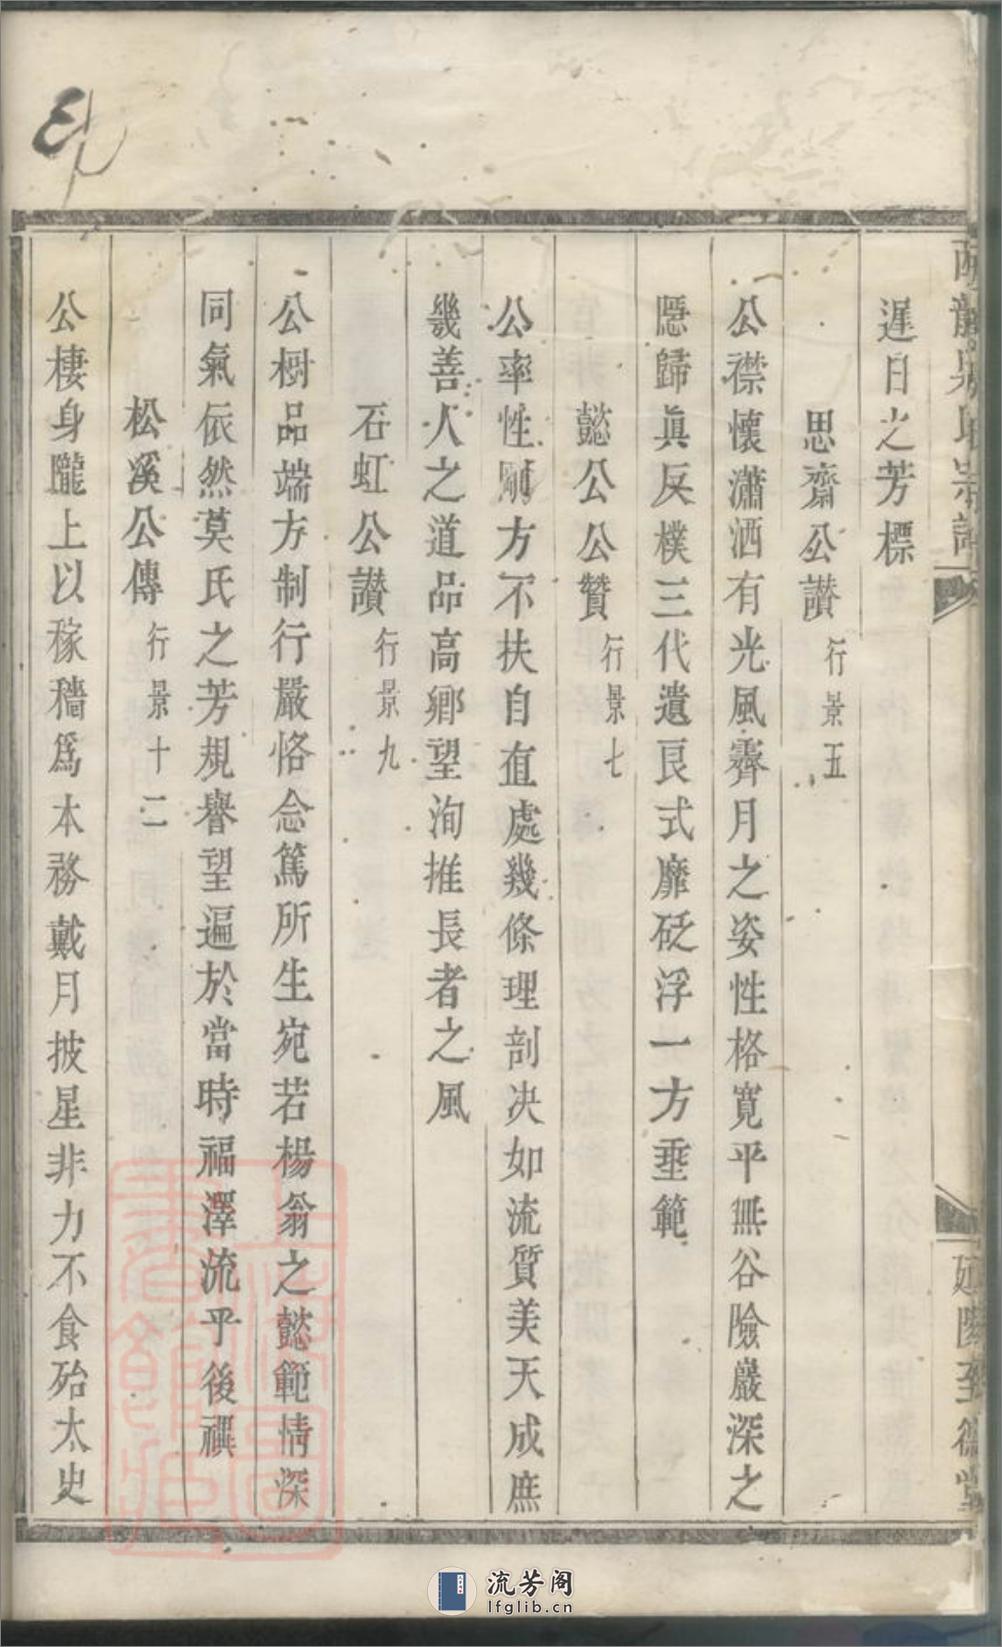 遲日之芳標
思齋公讃行景五
公襟懷瀟洒有光風霽月之姿性格寬平無谷險巖深之
隱歸眞反樸三代遺良式靡砭浮一方垂範
懿公公贊行景七
公率性剛方不扶自直處幾條理剖决如流質美天成庶
幾善人之道品高鄉望洵推長者之風
石虹公讃行景九
公樹品端方制行嚴恪念篤所生宛若楊翁之懿範情深
同氣依然莫氏之芳規譽望遍於當時福澤流乎後禩
松溪公傳行景十二
公棲身隴上以稼穡爲本務戴月披星非力不食殆太史
流芳阁
lfglib.cn